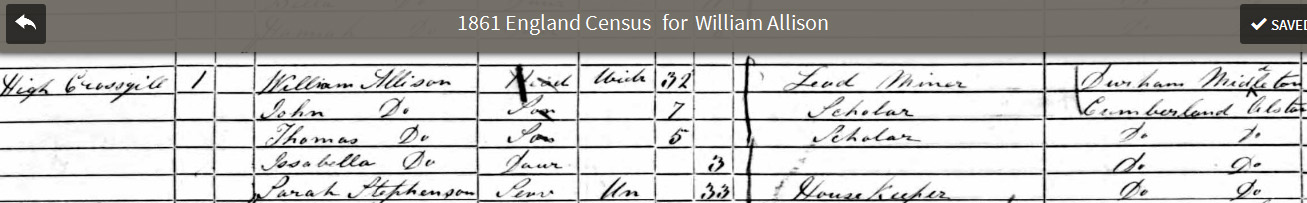 1861 England Census for William Allison
SAVED
High Crossgill 1 William Allison Head Wid 32 Lead Miner Durham Middleton
John Do Son 7 Scholar Cumberland Alston
Thomas Do Son 5 Scholar Do Do
Issabella Do Daur 3 Do Do
Sarah Stephenson Serv Un 33 House Keeper Do Do